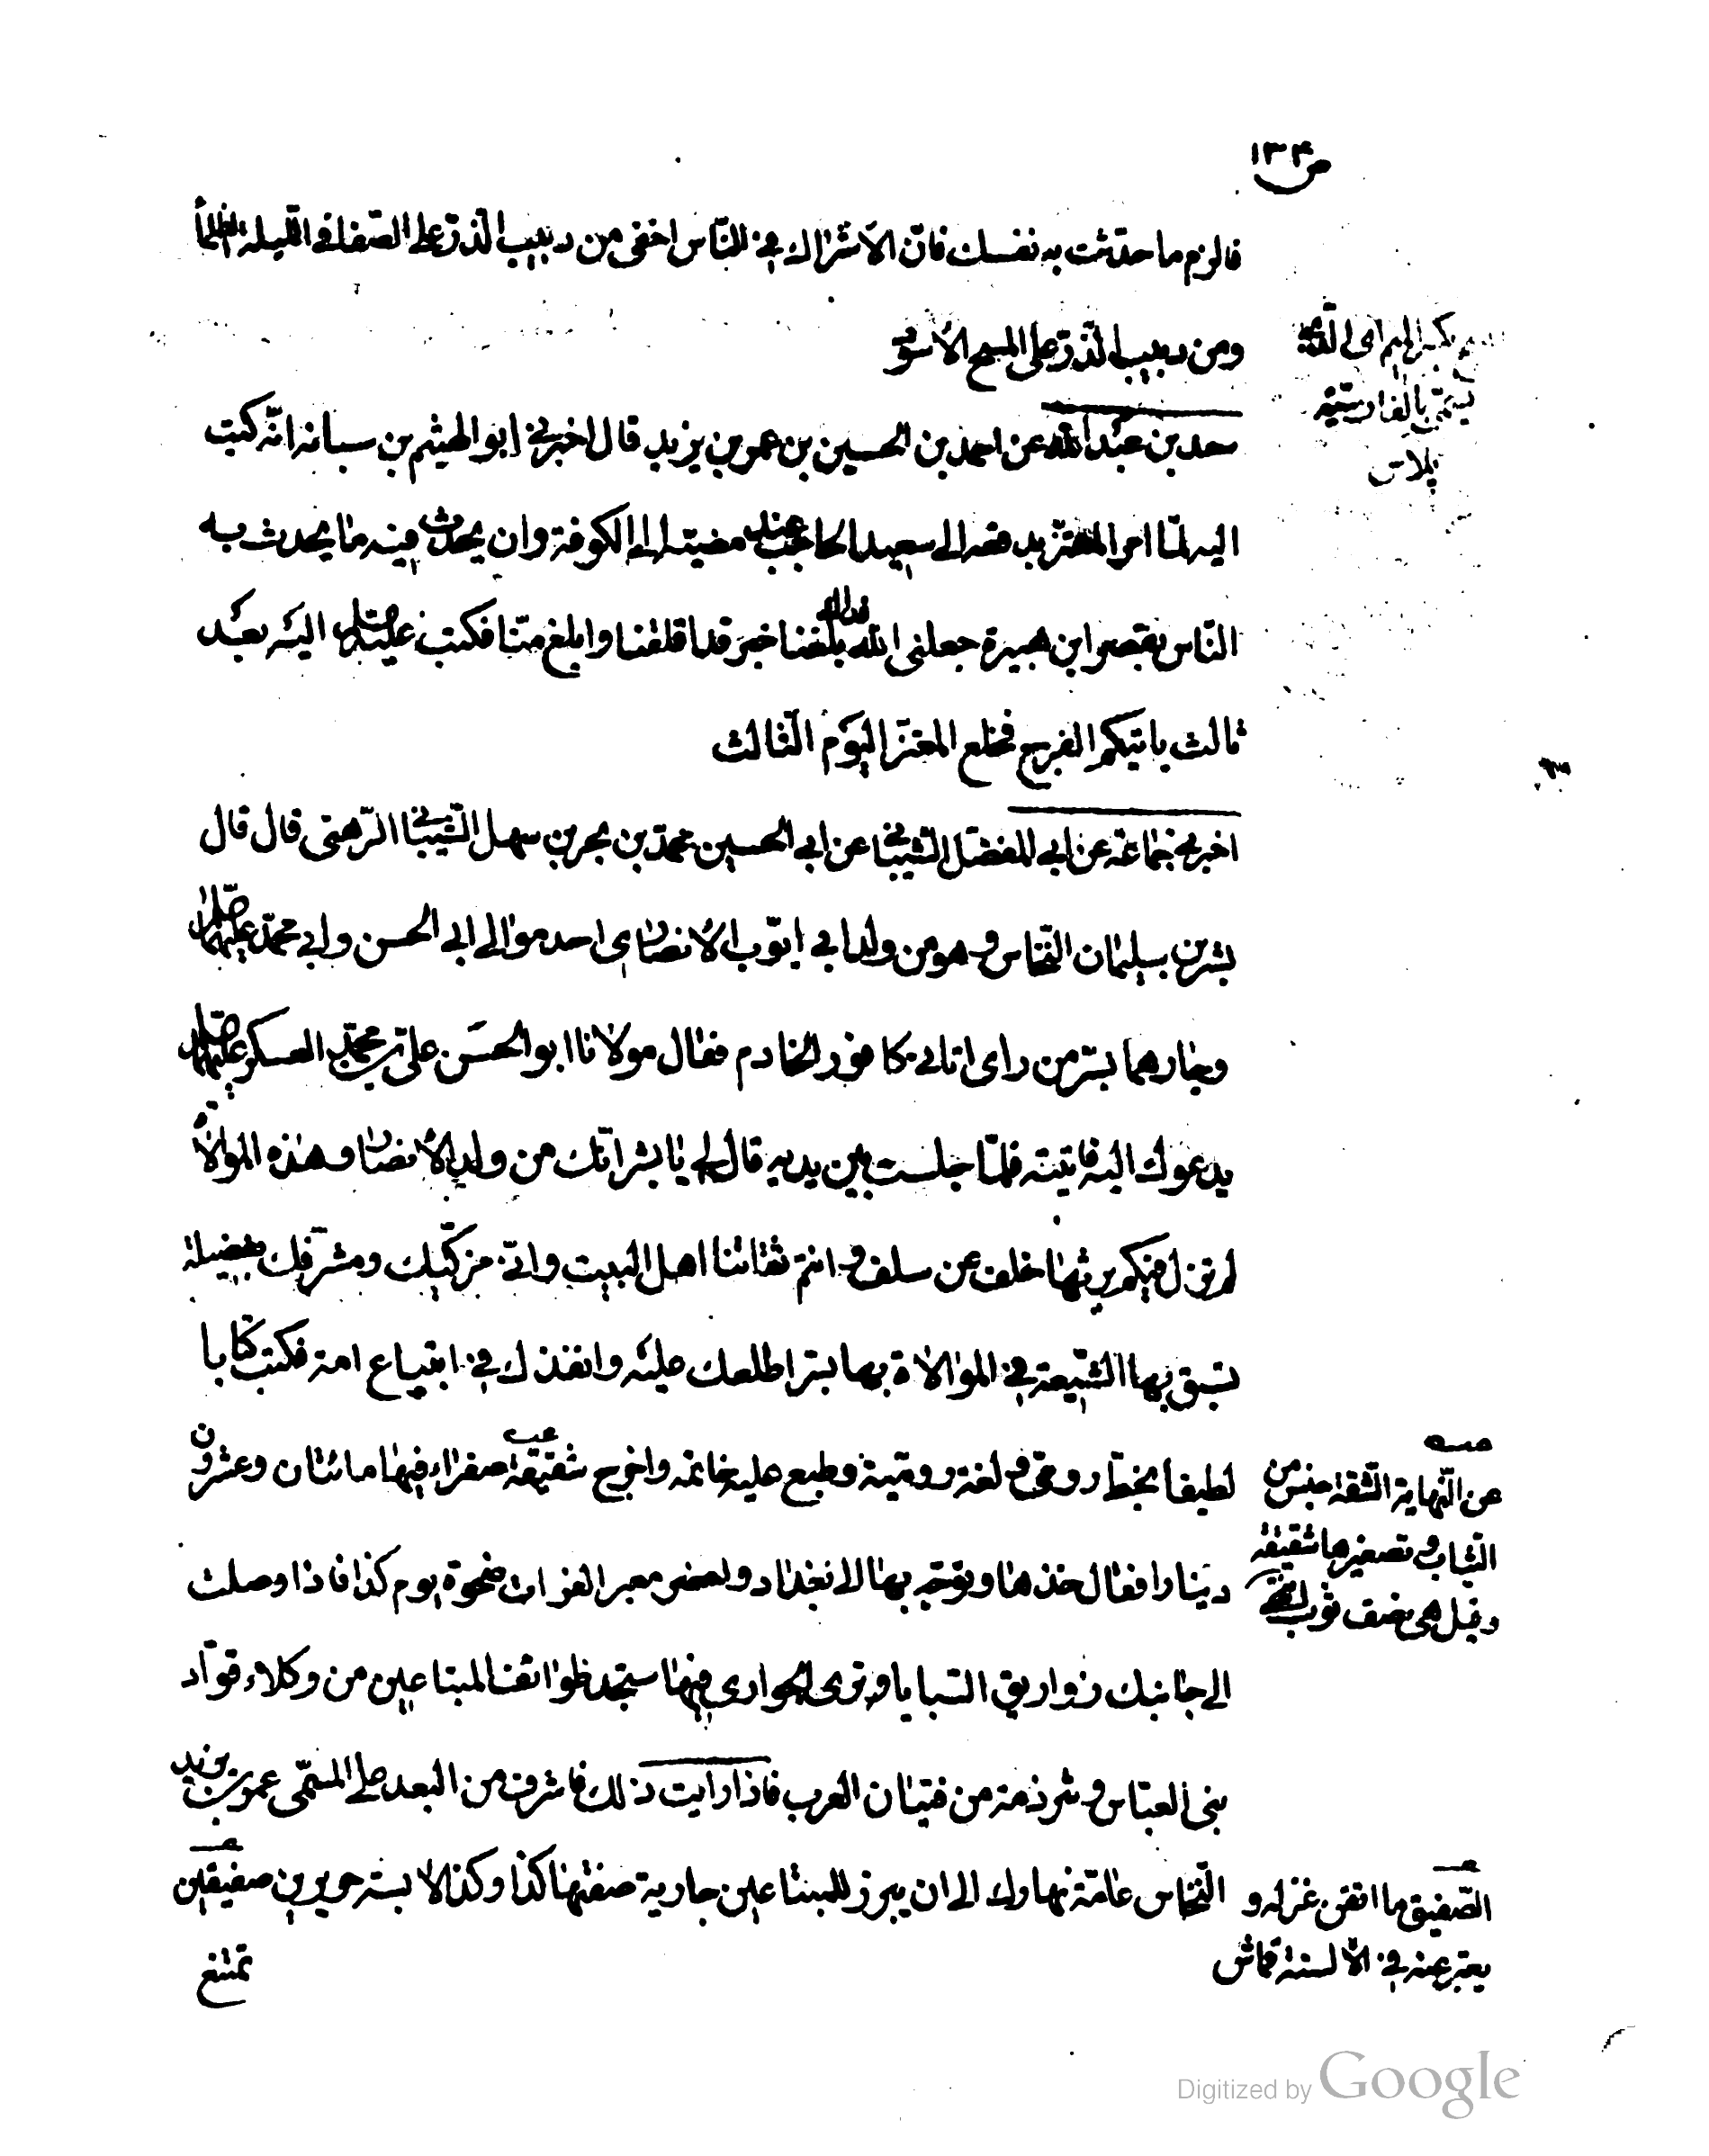 ص ١٣٤
فالزم ما حدثت به نفسك فانّ الاشراك فى النّاس اخفى من دبيب الذّرّ على الصّفا فى الليلة الظلماء
ومن دبيب الذّرّ على المسح الأسود
بكسر الميم
يسمّى بالفارسيّة
پلاس
سعد بن عبد الله عن احمد بن الحسين بن عمر بن يزيد قال اخبرنى ابو الهيثم بن سبانه انّه كتب
اليه لمّا امر المعتز بدفعه الى سعيد الحاجب عند مضيّه الى الكوفة وان يحدث فيه ما يحدث به
النّاس بقصر ابن هبيرة جعلنى الله فداك بلغنا خبر قد اقلقنا وابلغ منّا فكتب اليه بعد
ثالث ياتيكم الفرج فخلع المعتز اليوم الثّالث
اخبرنى جماعة عن ابى المفضّل الشيبانى عن ابى الحسين محمّد بن بحر بن سهل الشّيبانى الرّهنى قال قال
بشر بن سليمان النّخاس وهو من ولد ابى ايّوب الأنصارى احد موالى ابى الحسن وابى محمّد عليهما
وجارهما بسرّ من راى اتانى كافور الخادم فقال مولانا ابو الحسن علىّ بن محمّد العسكرى
يدعوك اليه فاتيته فلمّا جلست بين يديه قال لى يا بشر انّك من ولد الأنصار وهذه الموالاة
لم تزل فيكم يرثها خلف عن سلف وانتم ثقاتنا اهل البيت وانّى مزكّيك ومشرّفك بفضيلة
تسبق بها الشّيعة فى الموالاة بها بسرّ اطلعك عليه وانفذك فى ابتياع امة فكتب كتابا
لطيفا بخطّ رومىّ ولغة روميّة وطبع عليه خاتمه واخرج شقيقة صفراء فيها مائتان وعشرون
عن النّهاية الشّقة جنس من
الثياب وتصغيرها شقيقة
وقيل هى نصف ثوب
دينارا فقال خذها وتوجّه بها الى بغداد واحضر معبر الفرات ضحوة يوم كذا فاذا وصلت
الى جانبك زواريق السّبايا وترى الجوارى فيها ستجد طوائف المبتاعين من وكلاء قوّاد
بنى العبّاس وشرذمة من فتيان العرب فاذا رايت ذلك فاشرف من البعد على المسمّى عمر بن يزيد
النّخاس عامّة نهارك الى ان يبرز للمبتاعين جارية صفتها كذا وكذا لابسة حريرين صفيقين
الصّفيق ما اتقن غزله و
يعبّر عنه فى الألسنة قماش
تمتنع
Digitized by Google